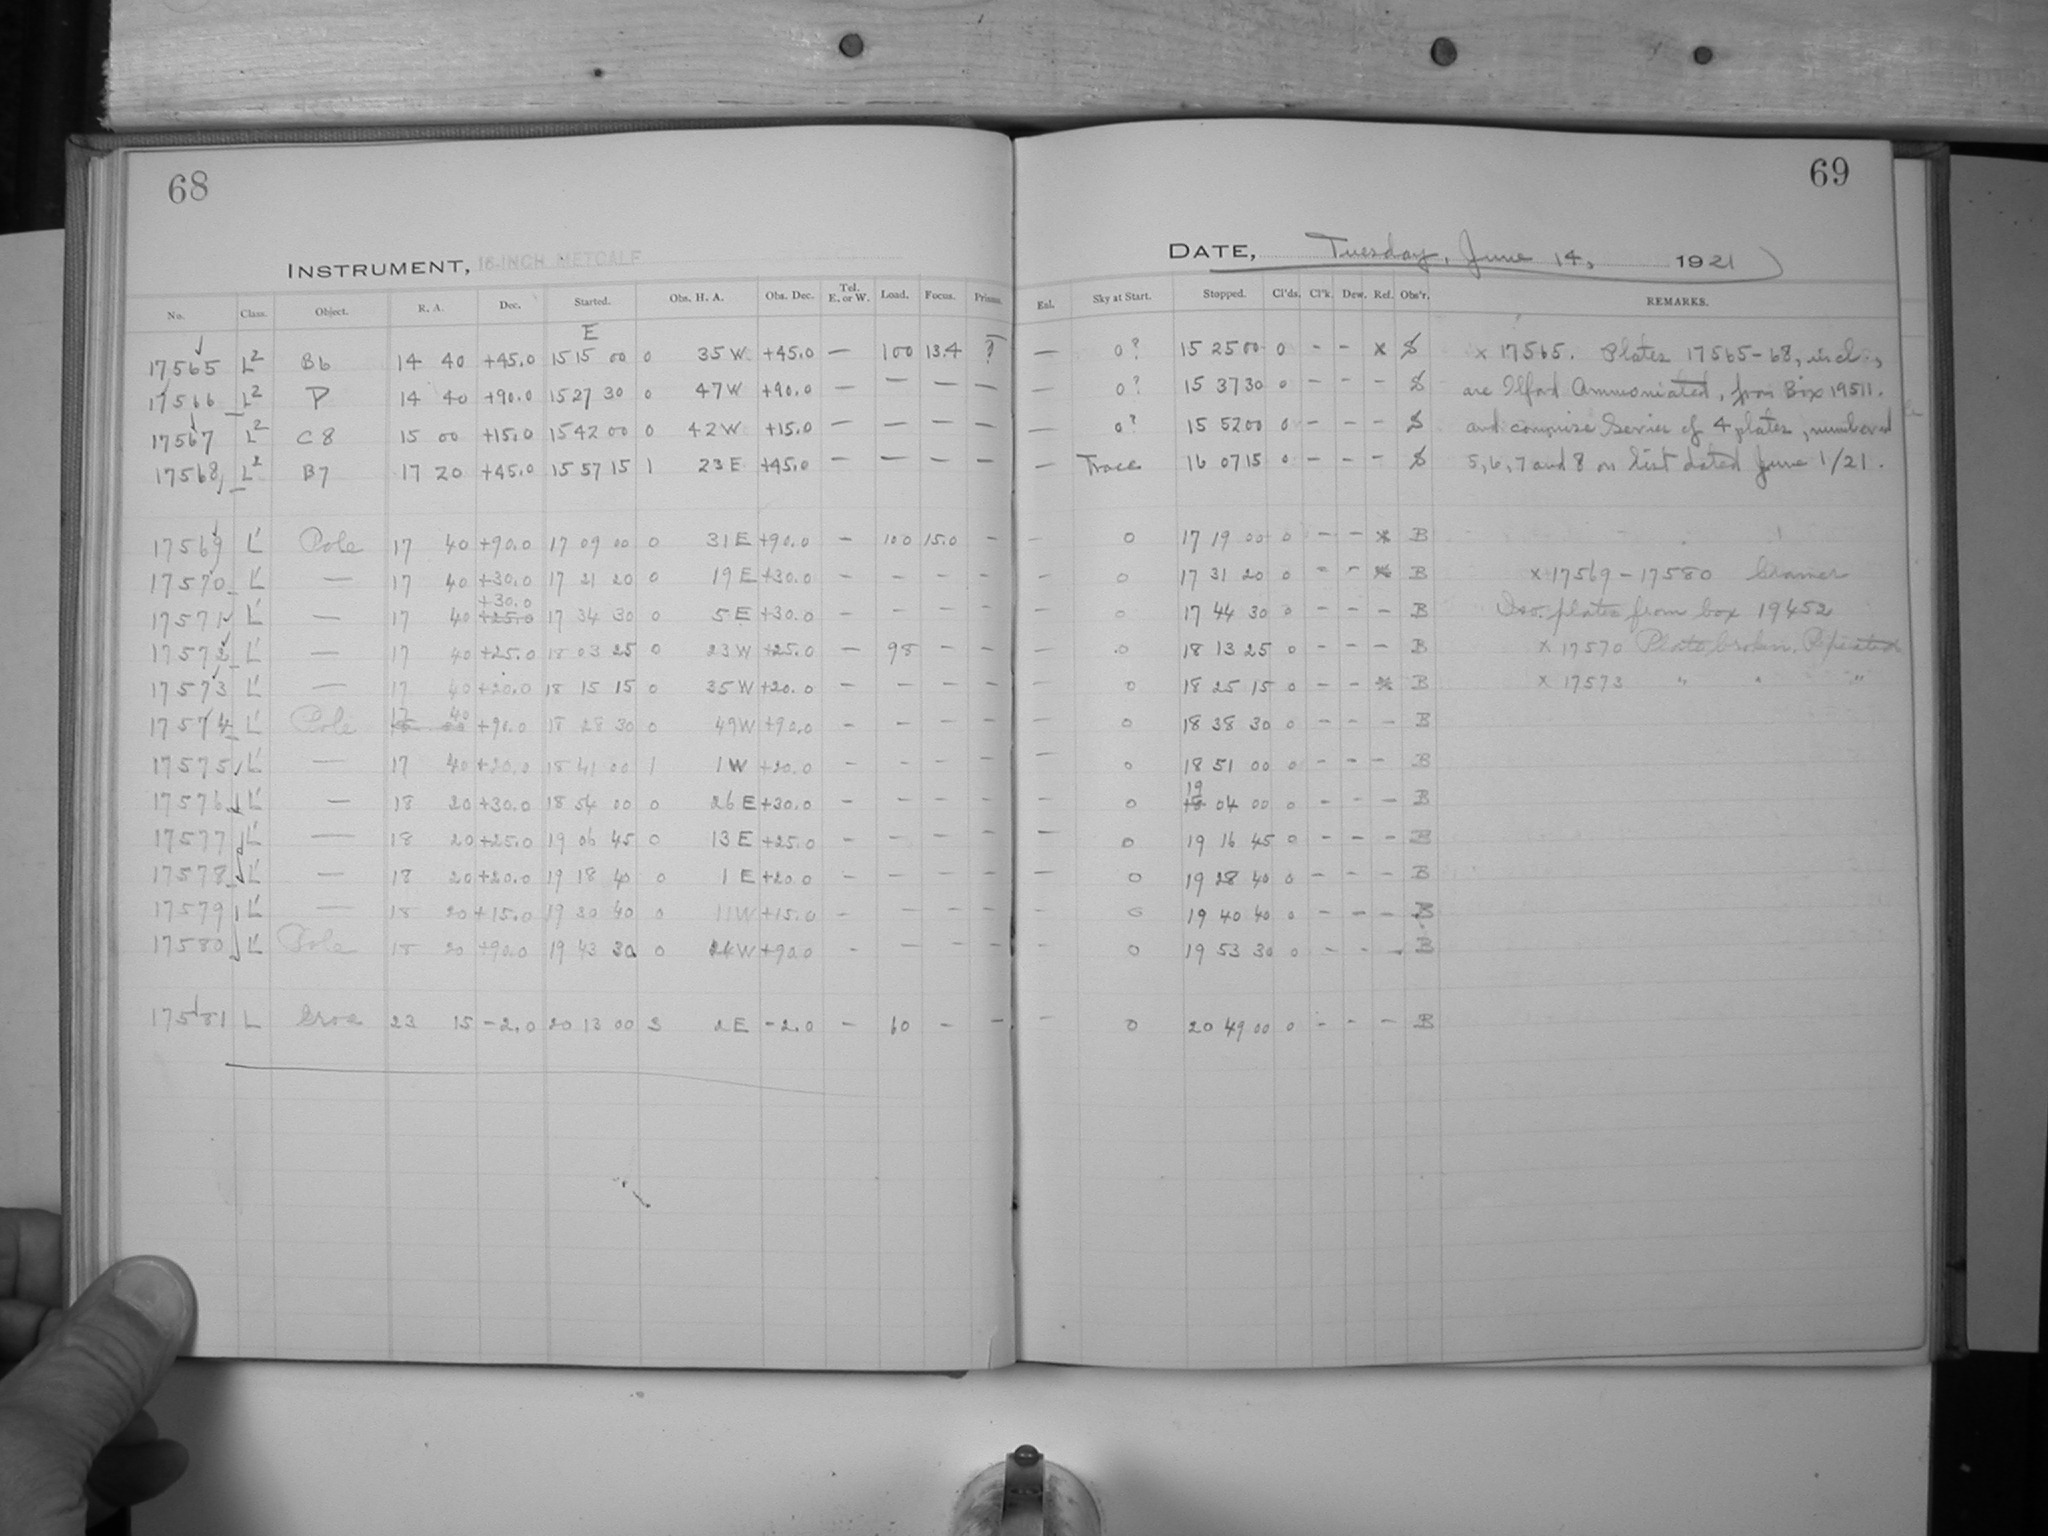 68
69
INSTRUMENT, 16-INCH METCALF
DATE, Tuesday, June 14, 1921
No. Class. Object. R. A. Dec. Started. Obs. H. A. Obs. Dec. Tel. E. or W. Load. Focus. Prisms. Eal. Sky at Start. Stopped. Cl'ds. Cl'k. Dew. Ref. Obs'r. REMARKS.
E
17565 L2 B6 14 40 +45.0 15 15 00 0 35 W +45.0 — 100 13.4 ? — 0? 15 25 00 0 - - x S x 17565. Plates 17565-68, incl.,
17566 L2 P 14 40 +90.0 15 27 30 0 47 W +90.0 — — — — — 0? 15 37 30 0 - - - S are Ilford Ammoniated, from Box 19511.
17567 L2 C8 15 00 +15.0 15 42 00 0 42 W +15.0 — — — — — 0? 15 52 00 0 - - - S and comprise Series of 4 plates, numbered
17568 L2 B7 17 20 +45.0 15 57 15 1 23 E +45.0 — — — — — Trace 16 07 15 0 - - - S 5, 6, 7 and 8 on list dated June 1/21.
17569 L' Pole 17 40 +90.0 17 09 00 0 31 E +90.0 — 100 15.0 — — 0 17 19 00 0 - - x B
17570 L' — 17 40 +30.0 17 21 20 0 19 E +30.0 - - - - — 0 17 31 20 0 - - x B x 17569-17580 Cramer
+30.0
17571 L' — 17 40 +25.0 17 34 30 0 5 E +30.0 - - - - — 0 17 44 30 0 - - - B Iso. plates from box 19452
17572 L' — 17 40 +25.0 18 03 25 0 23 W +25.0 — 98 - - — 0 18 13 25 0 - - - B x 17570 Plate broken. Repeated
17573 L' — 17 40 +20.0 18 15 15 0 35 W +20.0 - - - - — 0 18 25 15 0 - - x B x 17573 " " "
17 40
17574 L' Pole +90.0 18 28 30 0 49 W +90.0 - - - - — 0 18 38 30 0 - - - B
17575 L' — 17 40 +20.0 18 41 00 1 1 W +20.0 - - - - — 0 18 51 00 0 - - - B
19
17576 L' — 18 20 +30.0 18 54 00 0 26 E +30.0 - - - - — 0 18 04 00 0 - - - B
17577 L' — 18 20 +25.0 19 06 45 0 13 E +25.0 - - - - — 0 19 16 45 0 - - - B
17578 L' — 18 20 +20.0 19 18 40 0 1 E +20.0 - - - - — 0 19 28 40 0 - - - B
17579 L' — 18 20 +15.0 19 30 40 0 11 W +15.0 - - - - — 0 19 40 40 0 - - - B
17580 L' Pole 18 20 +90.0 19 43 30 0 24 W +90.0 - - - - — 0 19 53 30 0 - - - B
17581 L 23 15 -2.0 20 13 00 3 2 E -2.0 - 60 - - — 0 20 49 00 0 - - - B